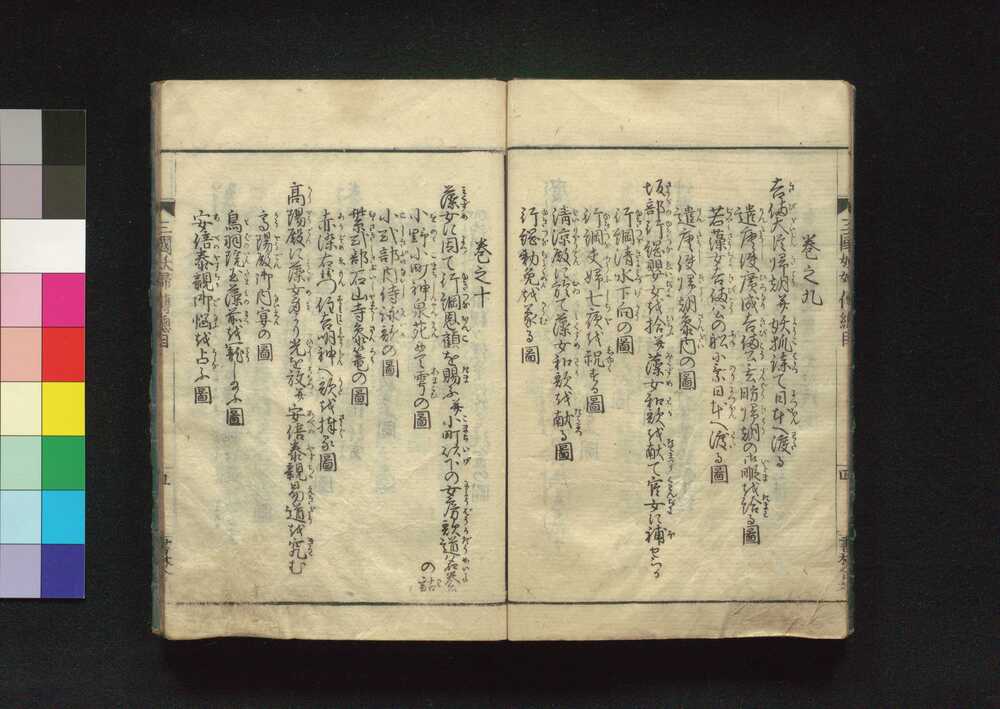 巻之九
吉備大臣帰朝并妖狐来て日本へ渡る
遣唐使
若藻女吉備公の船に乗日本へ渡る圖
遣唐使帰朝参内の圖
坂部行綱嬰女を拾并藻女和歌を献て官女に補せらる
行綱清水下向の圖
行綱夫婦七夜を祝する圖
清涼殿に於て藻女和歌を献る圖
行綱勅免を蒙る圖
三國妖婦傳總目
四
巻之十
藻女に因て行綱恩顧を賜ふ并小町以下の女房歌道名誉の話
小野小町神泉苑にて雩の圖
小式部内侍詠歌の圖
紫式部石山寺参篭の圖
赤染右衛門住吉明神へ歌を捧る圖
高陽殿に藻女身より光を放并安倍泰親易道を究む
高陽殿御内宴の圖
鳥羽院玉藻前を寵し給ふ圖
安倍泰親御悩を占ふ圖
三國妖婦傳總目
五